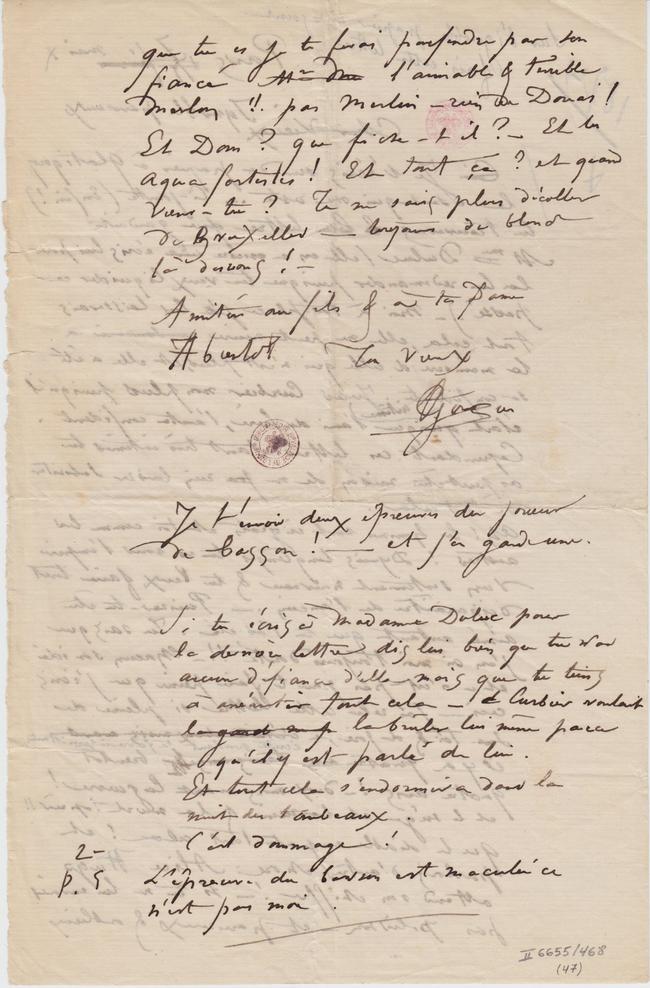 que tu es je te ferai pourfendre par son
fiancé l'aimable & terrible
Marlon !! pas Merlin — rien de Douai !
Et Dom ? que fiche-t-il ? — Et les
Aqua fortistes ! Et tout ça ? et quand
viens-tu ? Je ne sais plus décoller
de Bruxelles — toujours du blond
là dessous ! —
Amitiés au fils & à ta Dame
A bientôt Ton vieux
Je t'envoie deux épreuves du joueur
de basson ! — et j'en garde une.
Si tu écris à Madame Duluc pour
la dernière lettre dis lui bien que tu n'as
aucune défiance d'elle mais que tu tiens
à anéantir tout cela — & voulait
la brûler lui même parce
qu'il y est parlé de lui.
Et tout cela s'endormira dans la
nuit des tombeaux.
C'est dommage !
2
P. S L'épreuve du basson est maculée ce
n'est pas moi.
II 6655/468
(47)